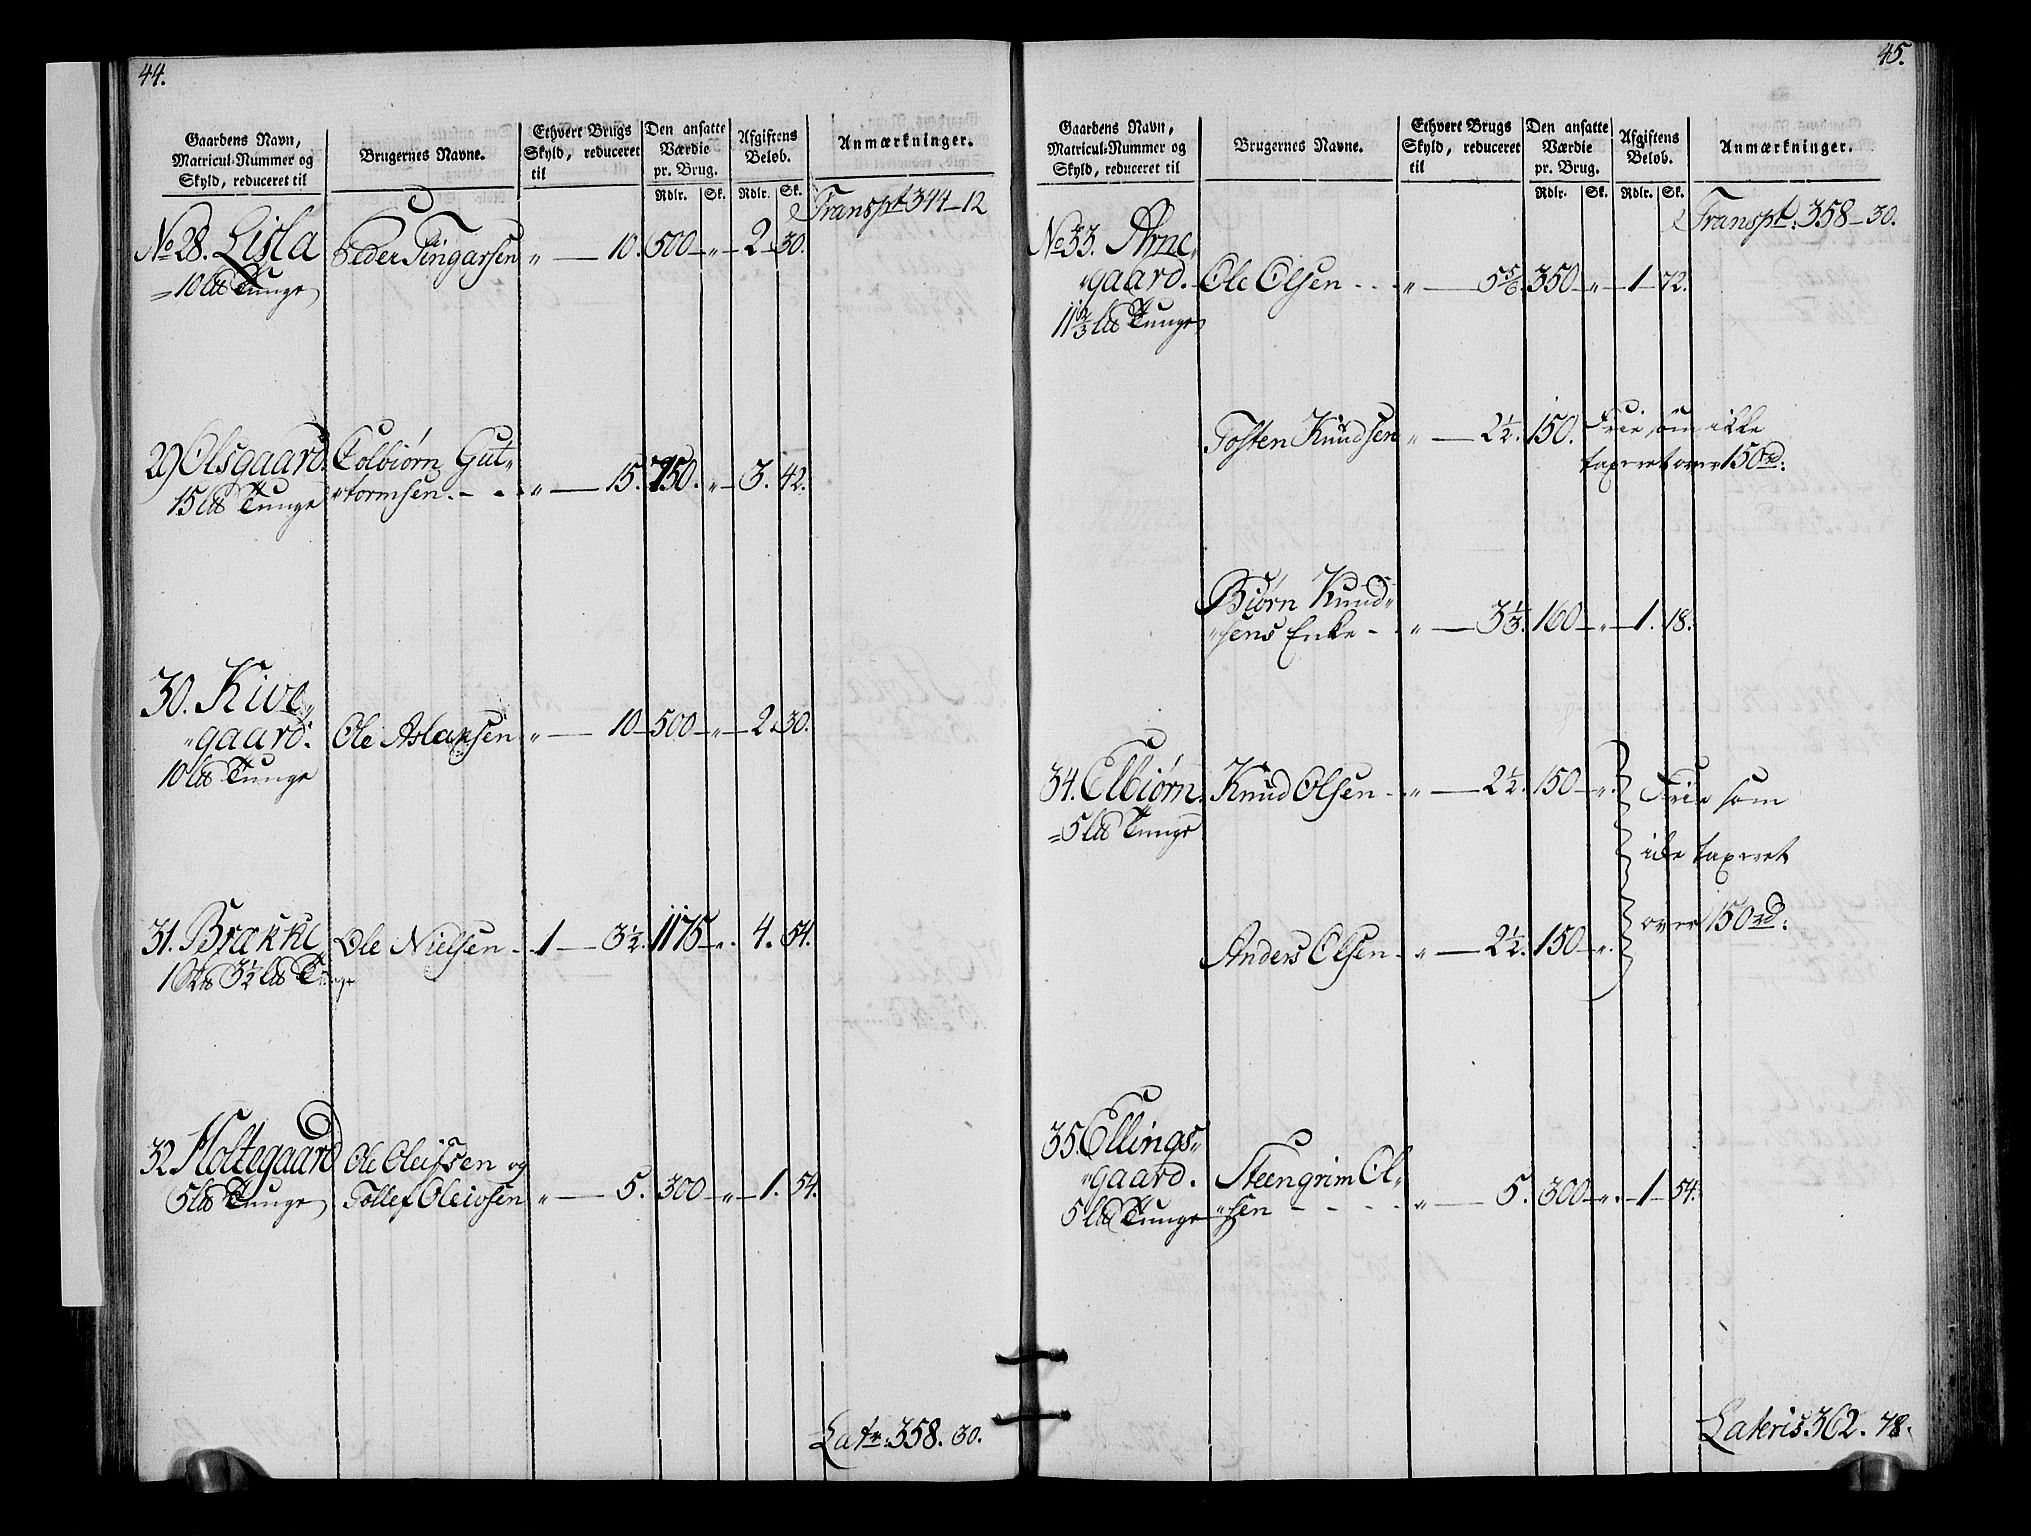 44.
Gaardens Navn, Matricul-Nummer og Skyld, reduceret til
Brugernes Navne.
Ethvert Brugs Skyld, reduceret til
Den ansatte Værdie pr. Brug.
Afgiftens Beløb.
Anmærkninger.
Rdlr. Sk. Rdlr. Sk.
Transpt 344-12
No 28. Lisla Peder Tingarsen " 10. 500 " 2 30.
10 lb Tunge
29 Olsgaard. Colbiørn Gut„
15 lb Tunge „tormsen. " 15. 750. " 3. 42.
30. Kive„
„gaard. Ole Aslaksen " 10 500 " 2 30.
10 lb Tunge
31. Brække Ole Nielsen 1 3½. 1175 ". 4. 54.
1 3½ lb Tunge
32 Holtegaard Ole Oleifsen og
5 lb Tunge Tollef Oleivsen " 5. 300 " 1. 54.
Latr: 358. 30.
45.
Gaardens Navn, Matricul-Nummer og Skyld, reduceret til
Brugernes Navne.
Ethvert Brugs Skyld, reduceret til
Den ansatte Værdie pr. Brug.
Afgiftens Beløb.
Anmærkninger.
Rdlr. Sk. Rdlr. Sk.
Transpt: 358-30.
No 33. Arne„
„gaard. Ole Olsen " 5⅚. 350 " 1 72.
11⅔ lb Tunge
Tosten Knudsen " 2½. 150. Frie, som ikke
taxeret over 150 rd:
Biørn Knud„
„sens Enke " 3⅓. 160 " 1. 18.
34. Elbiørn. Knud Olsen " 2½. 150 ". Frie som
5 lb Tunge
ike taxeret
over 150 rd:
Anders Olsen " 2½. 150 ".
35. Ellings„
„gaard. Steengrim Ol„
5 lb Tunge „sen " 5. 300 ". 1 54.
Lateris 362. 78.